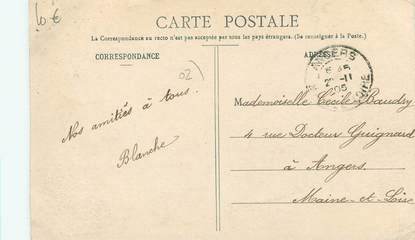 10 €
CARTE POSTALE
La Correspondance au recto n'est pas acceptée par tous les pays étrangers. (Se renseigner à la Poste.)
CORRESPONDANCE
ADRESSE
02)
ANGERS
LOIRE
Nos amitiés à tous.
Blanche
Mademoiselle Cécile Baudry
4 rue Docteur Guignard
à Angers.
Maine-et-Loire